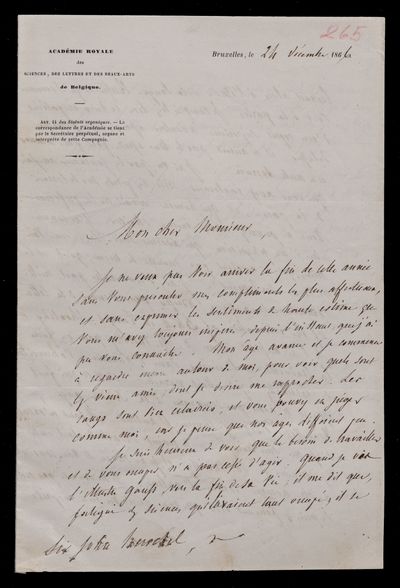 265
ACADÉMIE ROYALE
des
SCIENCES, DES LETTRES ET DES BEAUX-ARTS
de Belgique.
ART. 21 des Statuts organiques. — La
correspondance de l'Académie se tient
par le Secrétaire perpétuel, organe et
interprète de cette Compagnie.
Bruxelles, le 24 décembre 1866
Mon cher Monsieur,
Je ne veux pas voir arriver la fin de cette année
sans vous présenter mes compliments les plus affectueux,
et sans exprimer les sentiments de haute estime que
vous m'avez toujours inspirés depuis l'instant que j'ai
pu vous connaître. Mon âge avance et je commence
à regarder autour de moi, pour voir quels sont
les vieux amis dont je dois me rapprocher. Les
rangs sont bien éclaircis, et vous pouvez en juger
comme moi, car je pense que nos ages diffèrent peu.
Je suis heureux de voir que le besoin de travailler
et de vous occuper n'a pas cessé d'agir. Quand je vis
l'illustre Gauss, vers la fin de sa vie, il me dit que,
fatigué des sciences qui l'avaient tant occupé, il se
Sir John Herschel,